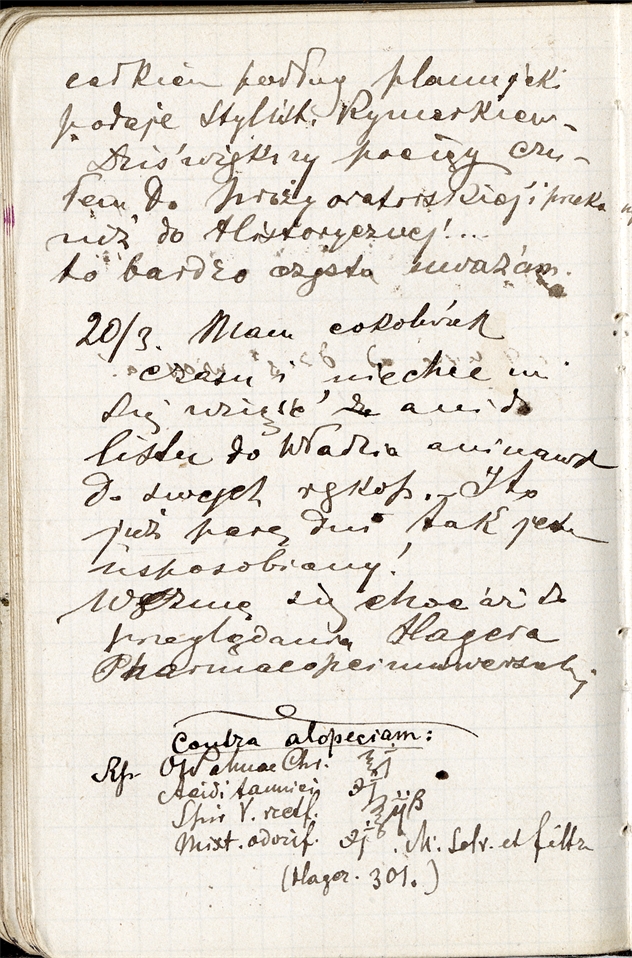 całkiem podług planu jaki
podaje Stylist. Rymarkiew-
Dziś większy pociąg czu-
łem do prozy oratorskiej i
niż do Historycznej!...
to bardzo często uważam.
20/3. Mam cokolwiek
czasu i niechce mi
się wziąść ani do
listu do Władzia ani nawet
do swych rękop. I to
już parę dni tak jestem
usposobiony!
Wezmę się chociaż do
przeglądania Hagera
Pharmacopei uniwersalnej
Contra alopeciam:
Rp. Ol. Palmae Chr.
Acidi tannici
Spir V. rectf.
Mixt. odorif. M. Solv. et filtr
(Hager. 301.)